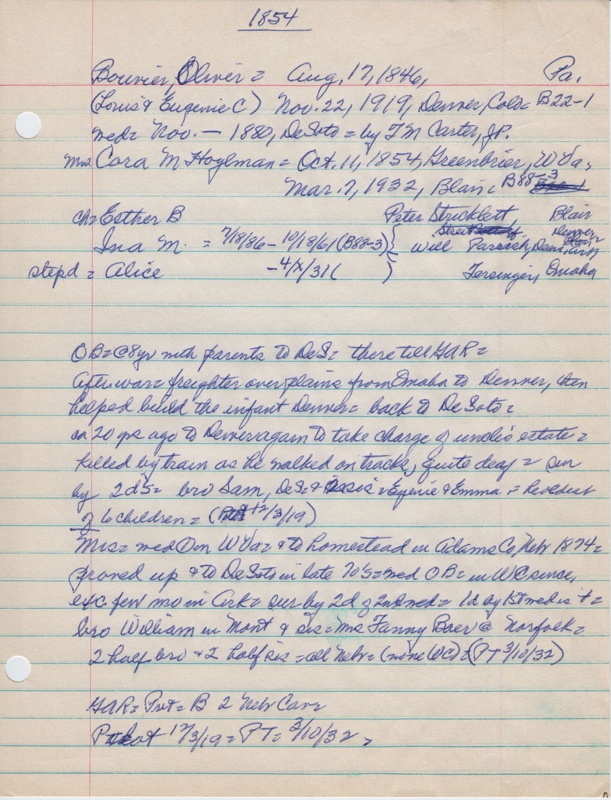 1854
Bouvier, Oliver = Aug, 17, 1846, Pa.
(Louis & Eugenie C) Nov. 22, 1919, Denver, Colo = B22-1
med = Nov. — 1880, DeSoto = by T M Carter, JP.
Mrs Cora M Hoylman = Oct. 11, 1854, Greenbrier, W Va,
Mar. 7, 1932, Blair = B88-3
ch = Esther B Peter Stricklett, Blair
Denver
Ina M. = 7/18/86 - 10/18/61 (B88-3) Will
stepd = Alice -4/x/31 ( ) Omaha
OB = @ 8 yr with parents to DeS = there till GAR =
After war = freighter over plains from Omaha to Denver, then
helped build the infant Denver = back to DeSoto =
ca 20 yrs ago to Denver again to take charge of uncle's estate =
killed by train as he walked on track, quite deaf = sur
by 2 ds = bro Sam, DeS & sis = Eugenie & Emma = he oldest
of 6 children = ( 12/3/19)
Mrs = med 0 in W Va = & to homestead in Adams Co, Nebr 1874 =
proved up & to DeSoto in late 70's = med OB = in WC since,
exc few mo in Ark = sur by 2 d of 2nd med = 1 d by 1st med is + =
bro William in Mont & sis = Mrs Fanny Baer @ Norfolk =
2 half bro & 2 half sis = all Nebr = (none WC) = (PT 3/10/32)
GAR = Pvt = B 2 Nebr Cav =
12/3/19 = PT = 3/10/32 =